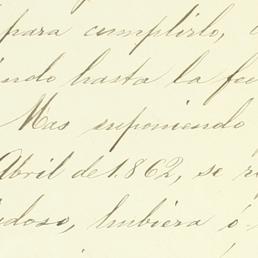 para cumplirlo,
ndo hasta la fe
Mas suponiendo
Abril de 1.862, se r
doso, hubiera ó